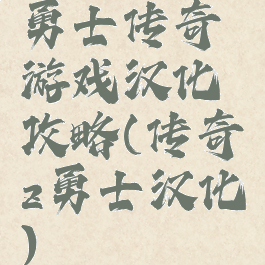 勇士传奇
游戏汉化
攻略(传奇
z勇士汉化
)